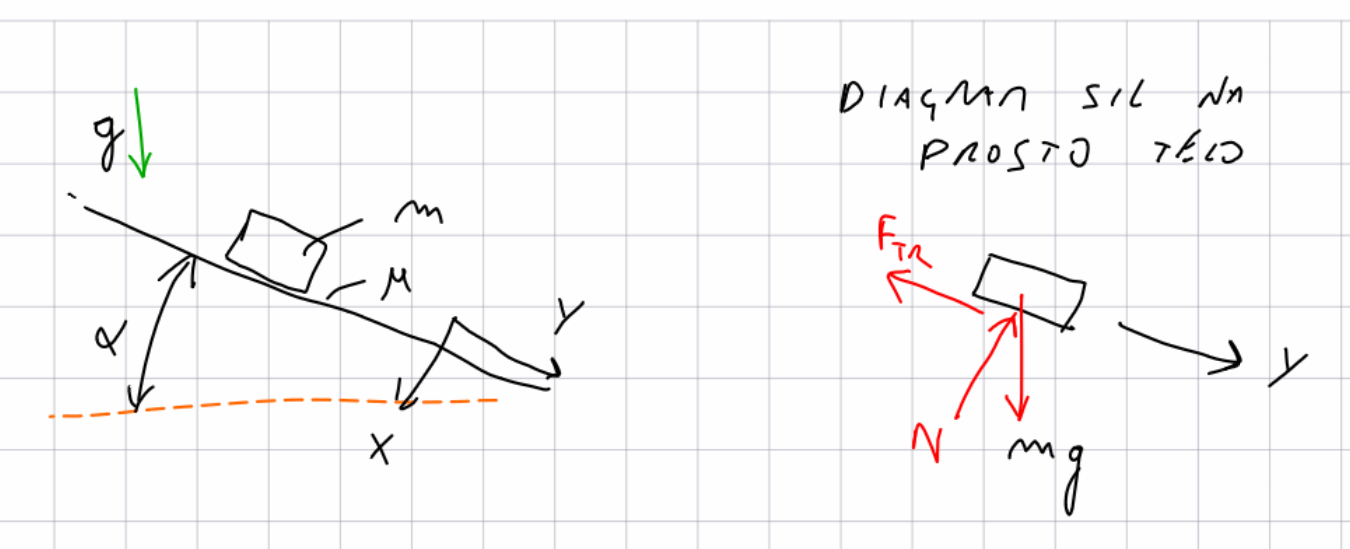 g
m
μ
α
y
x
DIAGRAM SIL NA
PROSTO TELO
F_TR
N
mg
y